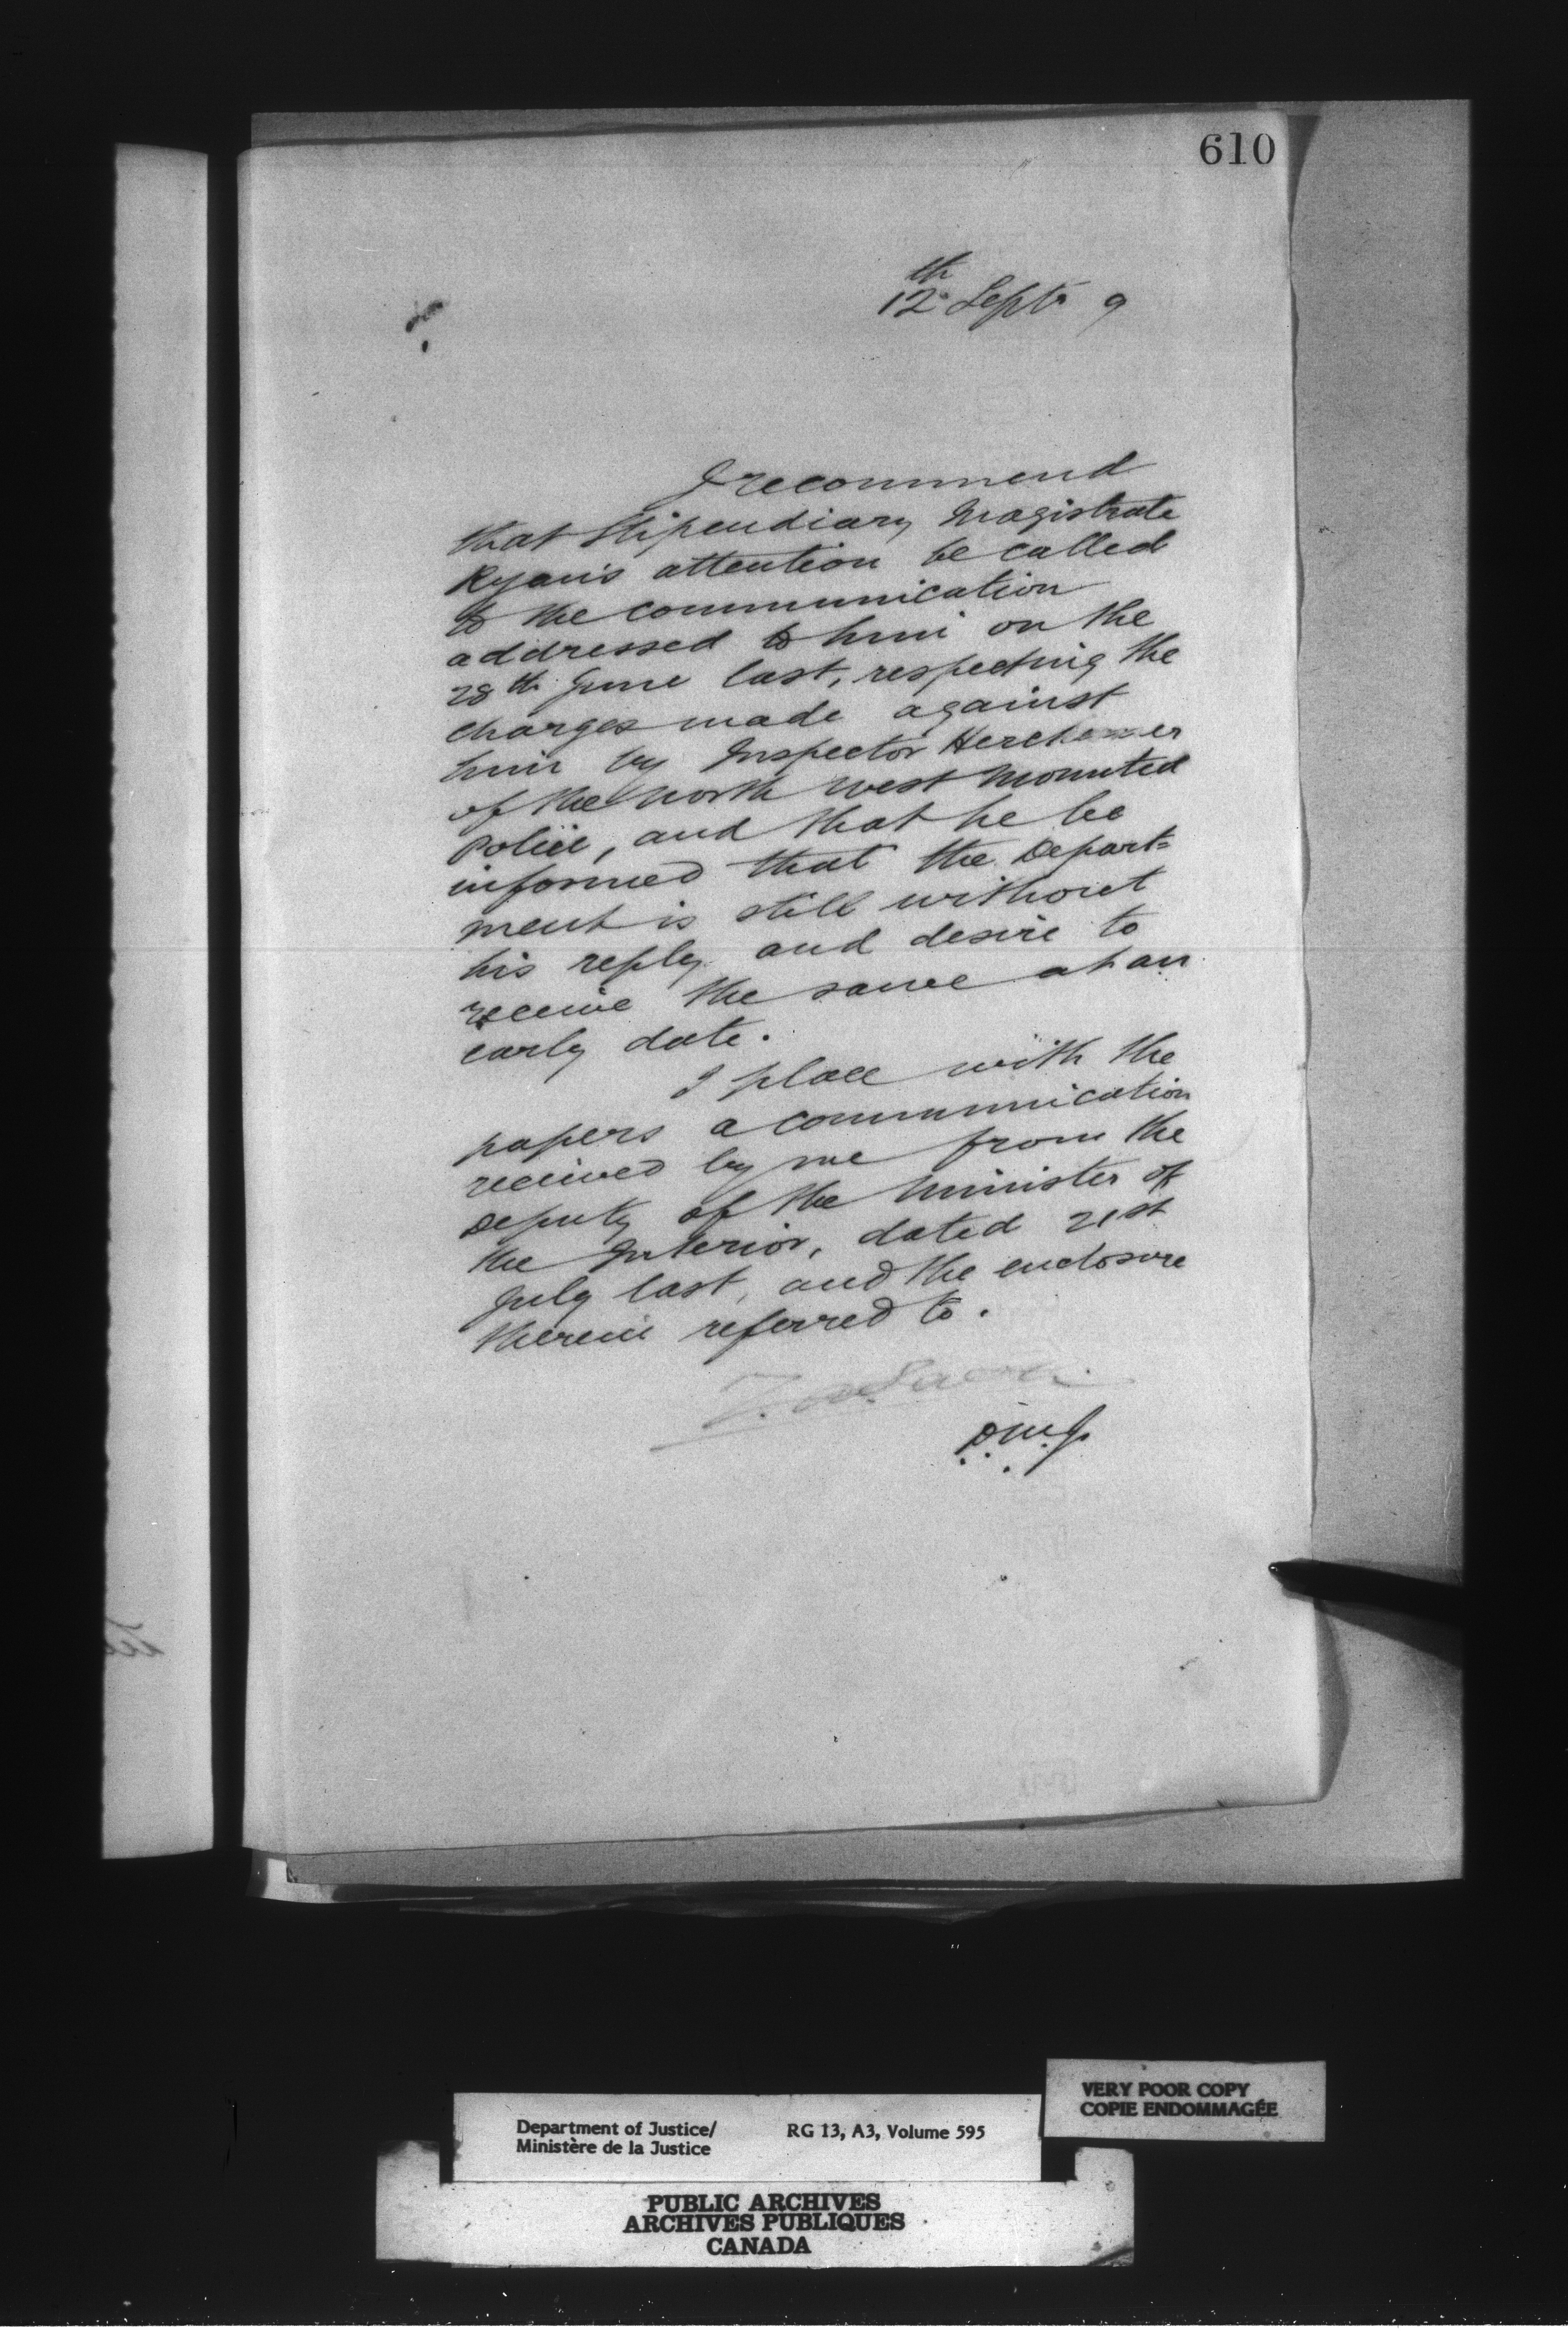 610
12th Septr 9
I recommend
that Stipendiary Magistrate
Ryan's attention be called
to the communication
addressed to him on the
28th June last, respecting the
charges made against
him by Inspector Herchemer
of the North West Mounted
Police, and that he be
informed that the Depart=
ment is still without
his reply and desire to
receive the same at an
early date.
I place with the
papers a communication
received by me from the
Deputy of the Minister of
the Interior, dated 21st
July last, and the enclosure
therein referred to.
Z. A. Lash
D.M.J.
Department of Justice/ RG 13, A3, Volume 595
Ministère de la Justice
VERY POOR COPY
COPIE ENDOMMAGÉE
PUBLIC ARCHIVES
ARCHIVES PUBLIQUES
CANADA